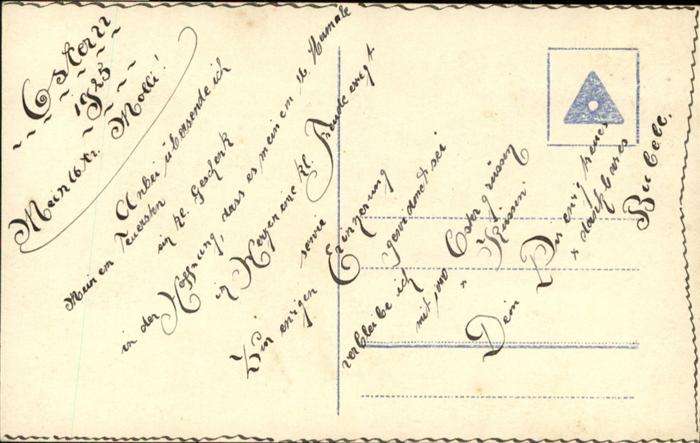 Ostern
1925
Mein lb. kl. Molli!
Anbei übersende ich
Meinem Teuersten
ein kl. Geschenk
in der Hoffnung, dass es meinem lb. Mamale
im Herzen eine kl. Freude
sowie
Zur ewigen Erinnerung
gewidmet sei
verbleibe ich
mit 1000 Ostergrüssen
" Küssen.
Dein Dir ewig treues
& dankbares
Bubele.